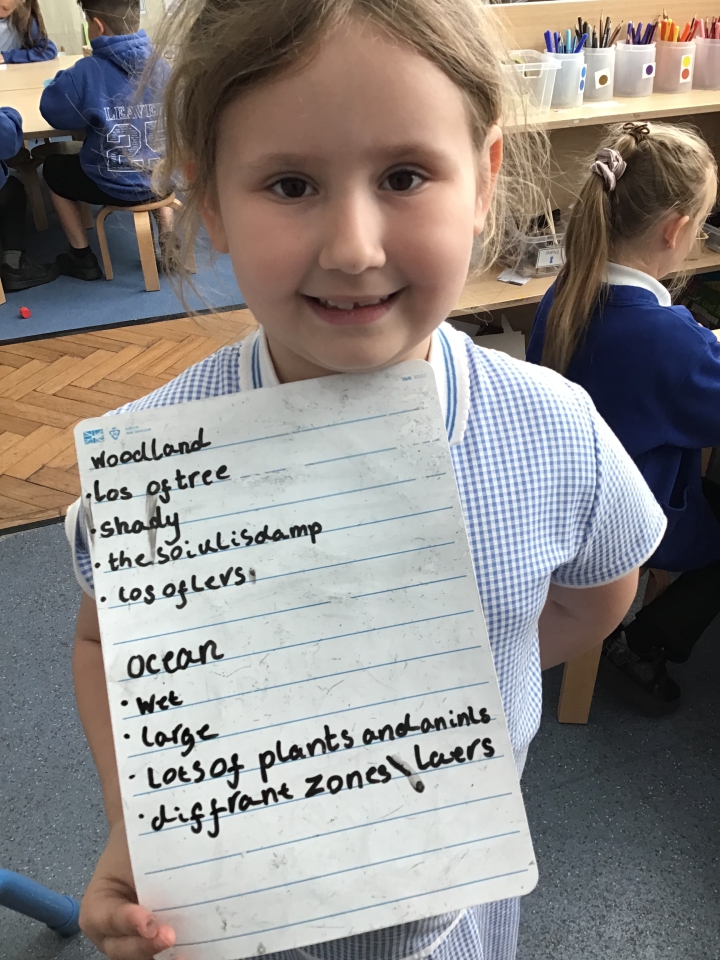 LEAVER
25
woodland
• Los of tree
• shady
• the soiulisdamp
• Los of Levs
ocean
• wet
• Large
• Lots of plants and aninls
• diffrant zones\ Lavers